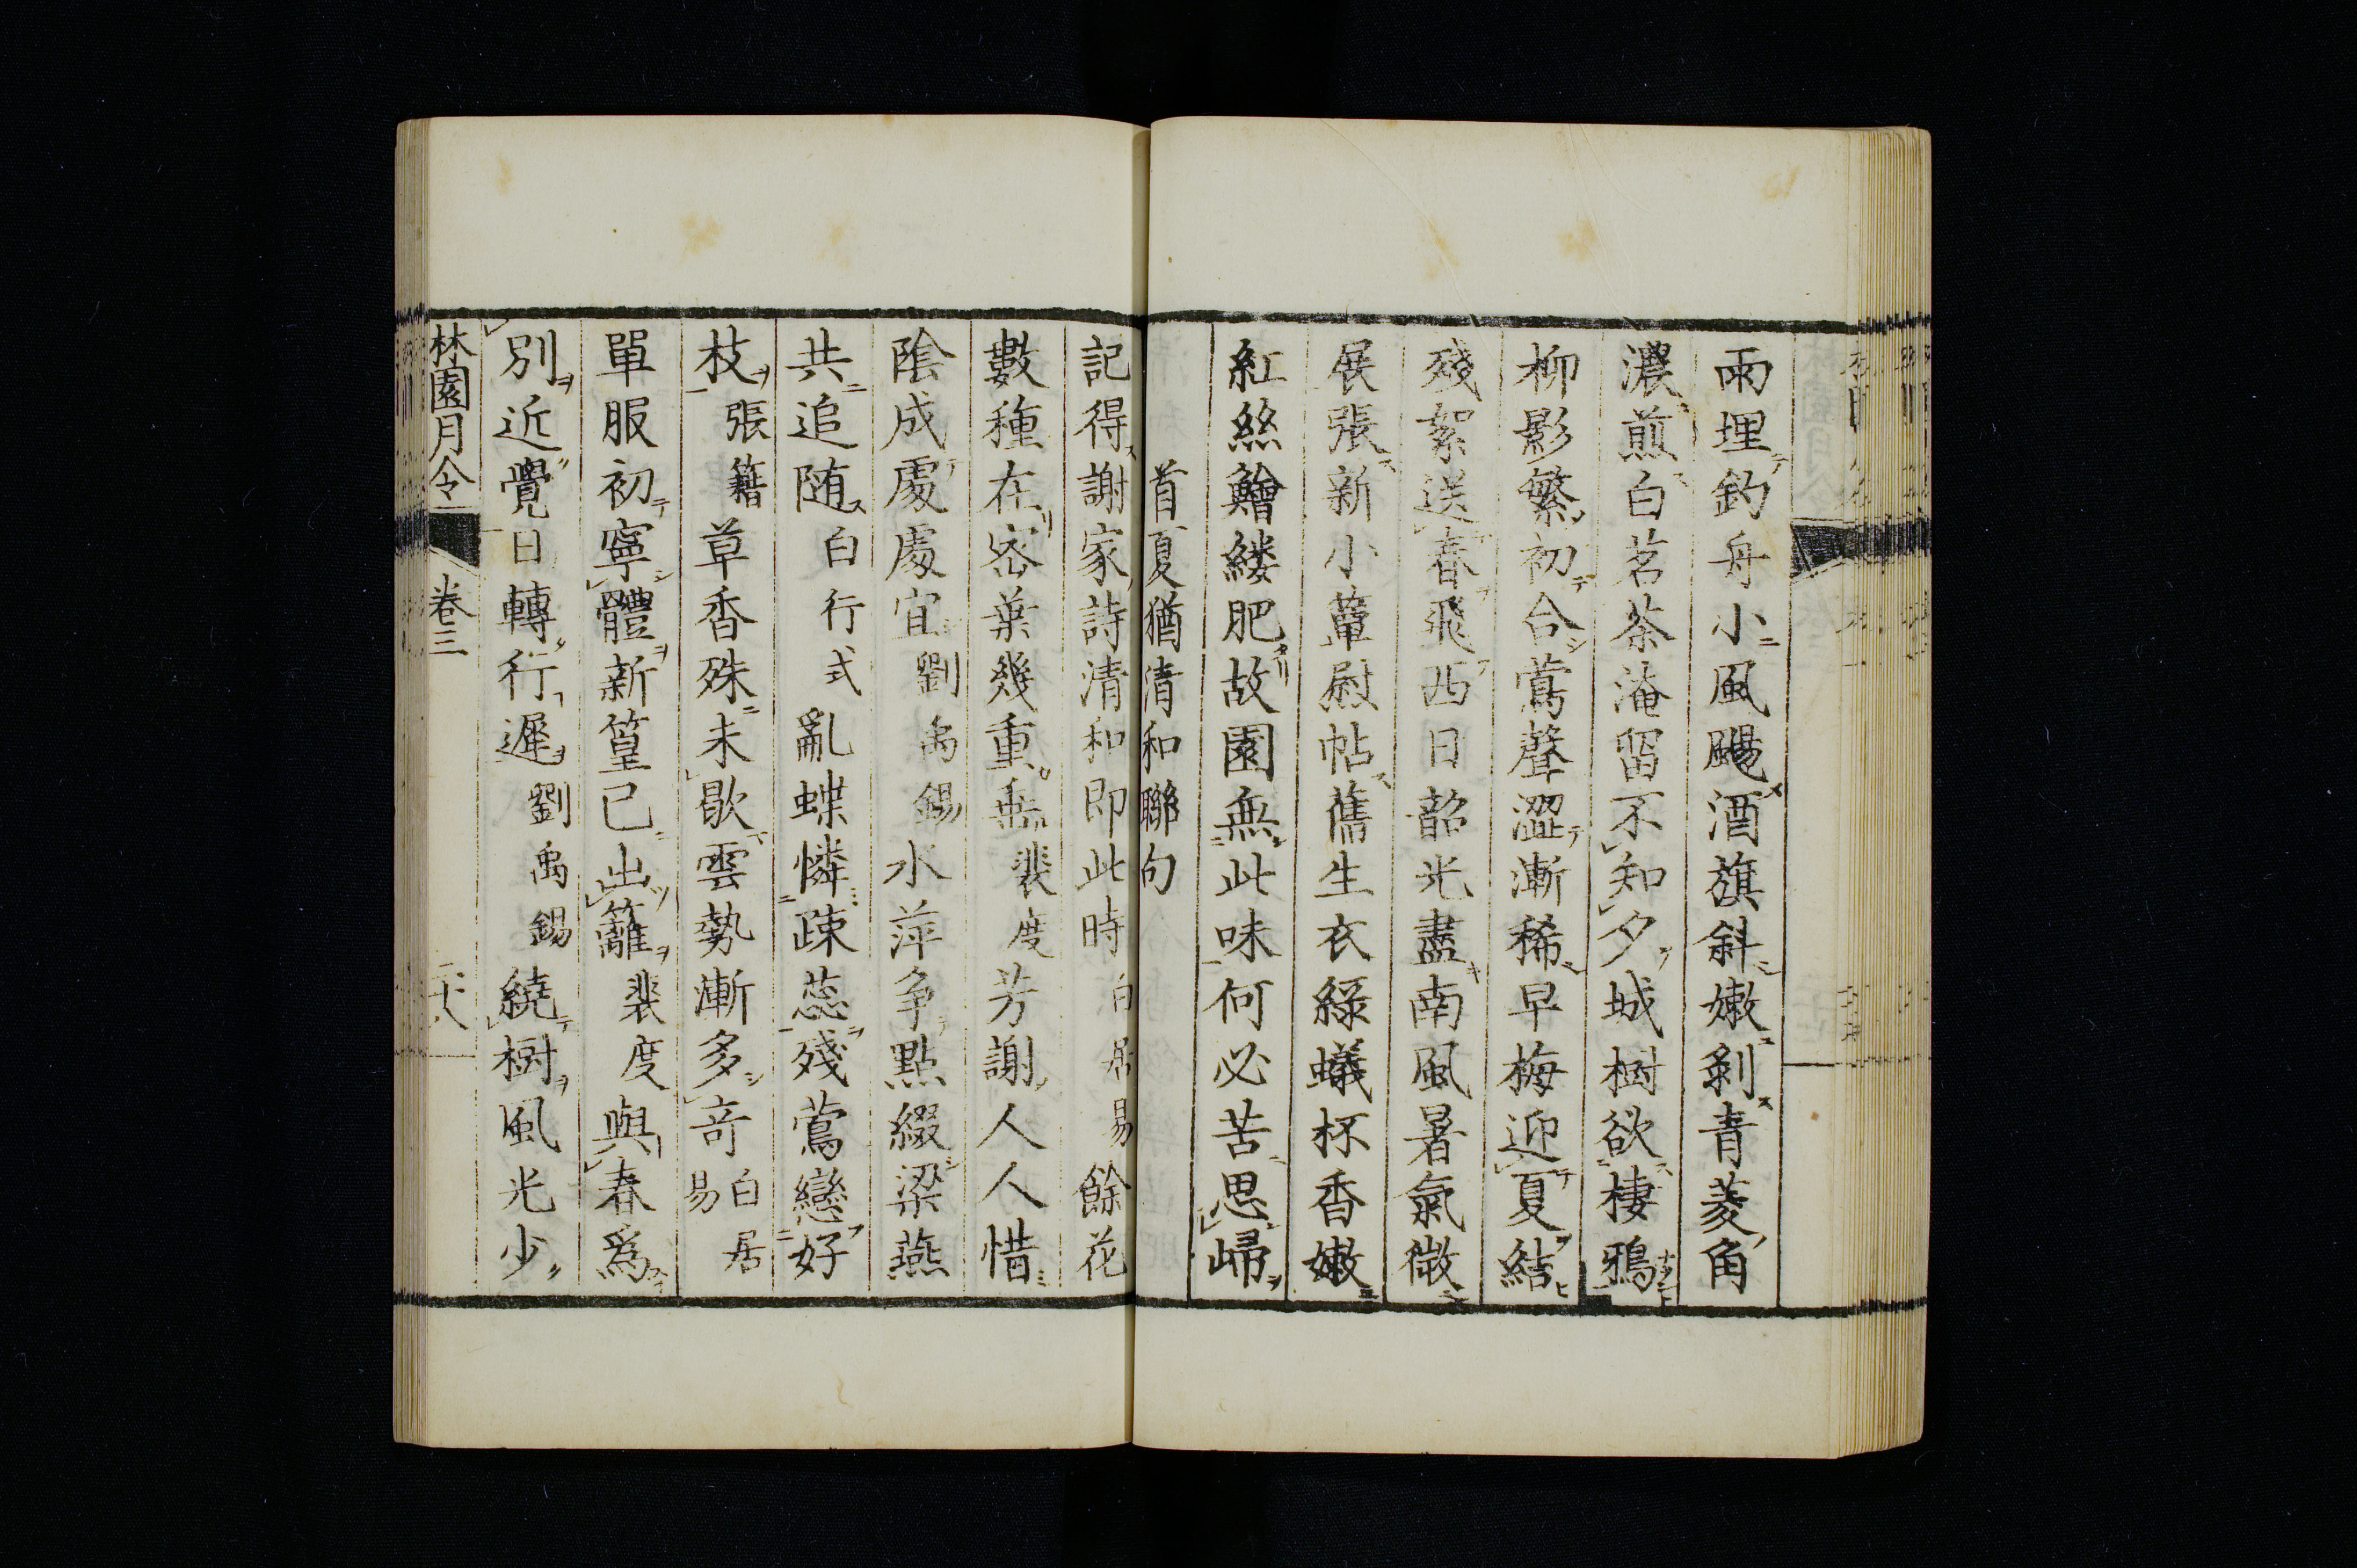 雨埋釣舟小風颺酒旗斜嫩剥青菱角
濃煎白茗茶淹留不知夕城樹欲棲鴉
柳影繁初合鶯聲澀漸稀早梅迎夏結
殘絮送春飛西日韶光盡南風暑氣微
展張新小簟尉帖舊生衣綠蟻杯香嫩
紅絲鱠縷肥故園無此味何必苦思歸
首夏猶清和聯句
記得謝家詩清和即此時白居易餘花
數種在密葉幾重垂裴度芳謝人人惜
陰成處處宜劉禹錫水萍争點綴梁燕
共追随白行式亂蝶憐疎蕊殘鶯戀好
枝張籍草香殊未歇雲勢漸多奇白居易
單服初寧體新篁已出籬裴度與春爲
別近覺日轉行遲劉禹錫繞樹風光少
林園月令 卷三 二十八